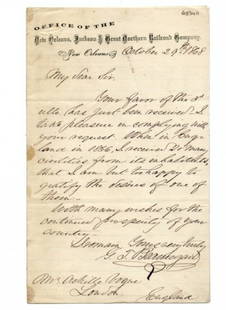 OFFICE OF THE
New Orleans, Jackson & Great Northern Railroad Company,
New Orleans, October 29th 1868
My Dear Sir
Your favor of the 8th
ulto has just been received & I
take pleasure in complying with
your request. When in Eng-
land in 1866, I received so many
civilities from its inhabitants
that I am but too happy to
gratify the desires of one
of them.
With many wishes for the
continued prosperity of your
country,
I remain Yours very truly
G. T. Beauregard
Mr
London,
England